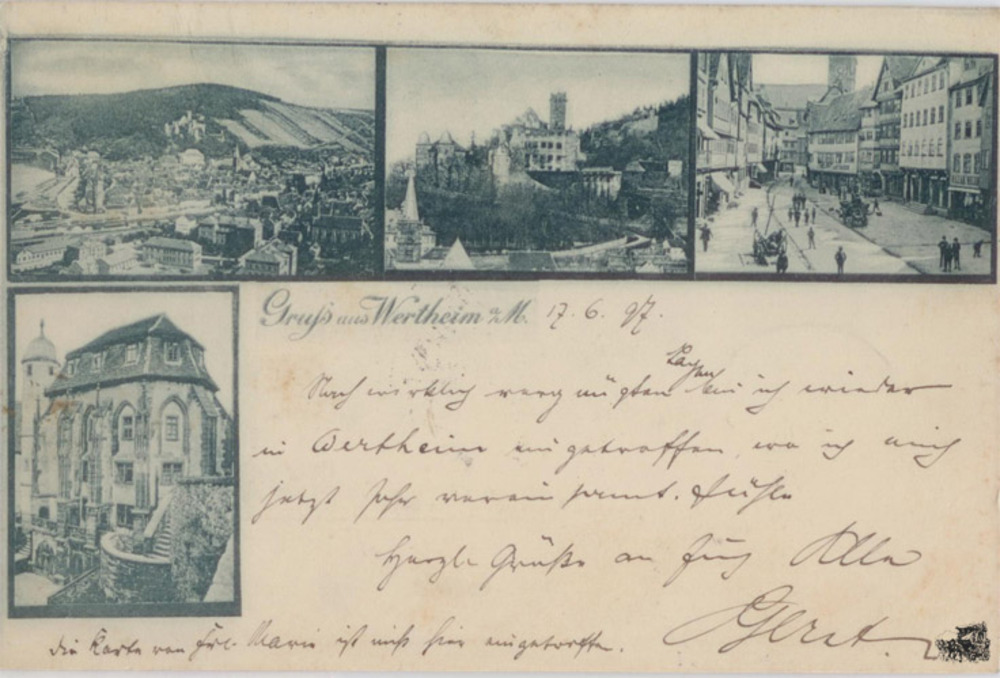 Gruß aus Wertheim a/M. 17. 6. 97.
Tagen
Nach wirklich vergnügten bin ich wieder
in Wertheim eingetroffen, wo ich mich
jetzt sehr vereinsamt fühle
Herzl. Grüße an Euch Alle
die Karte von Frl. Marie ist mich hier eingetroffen.